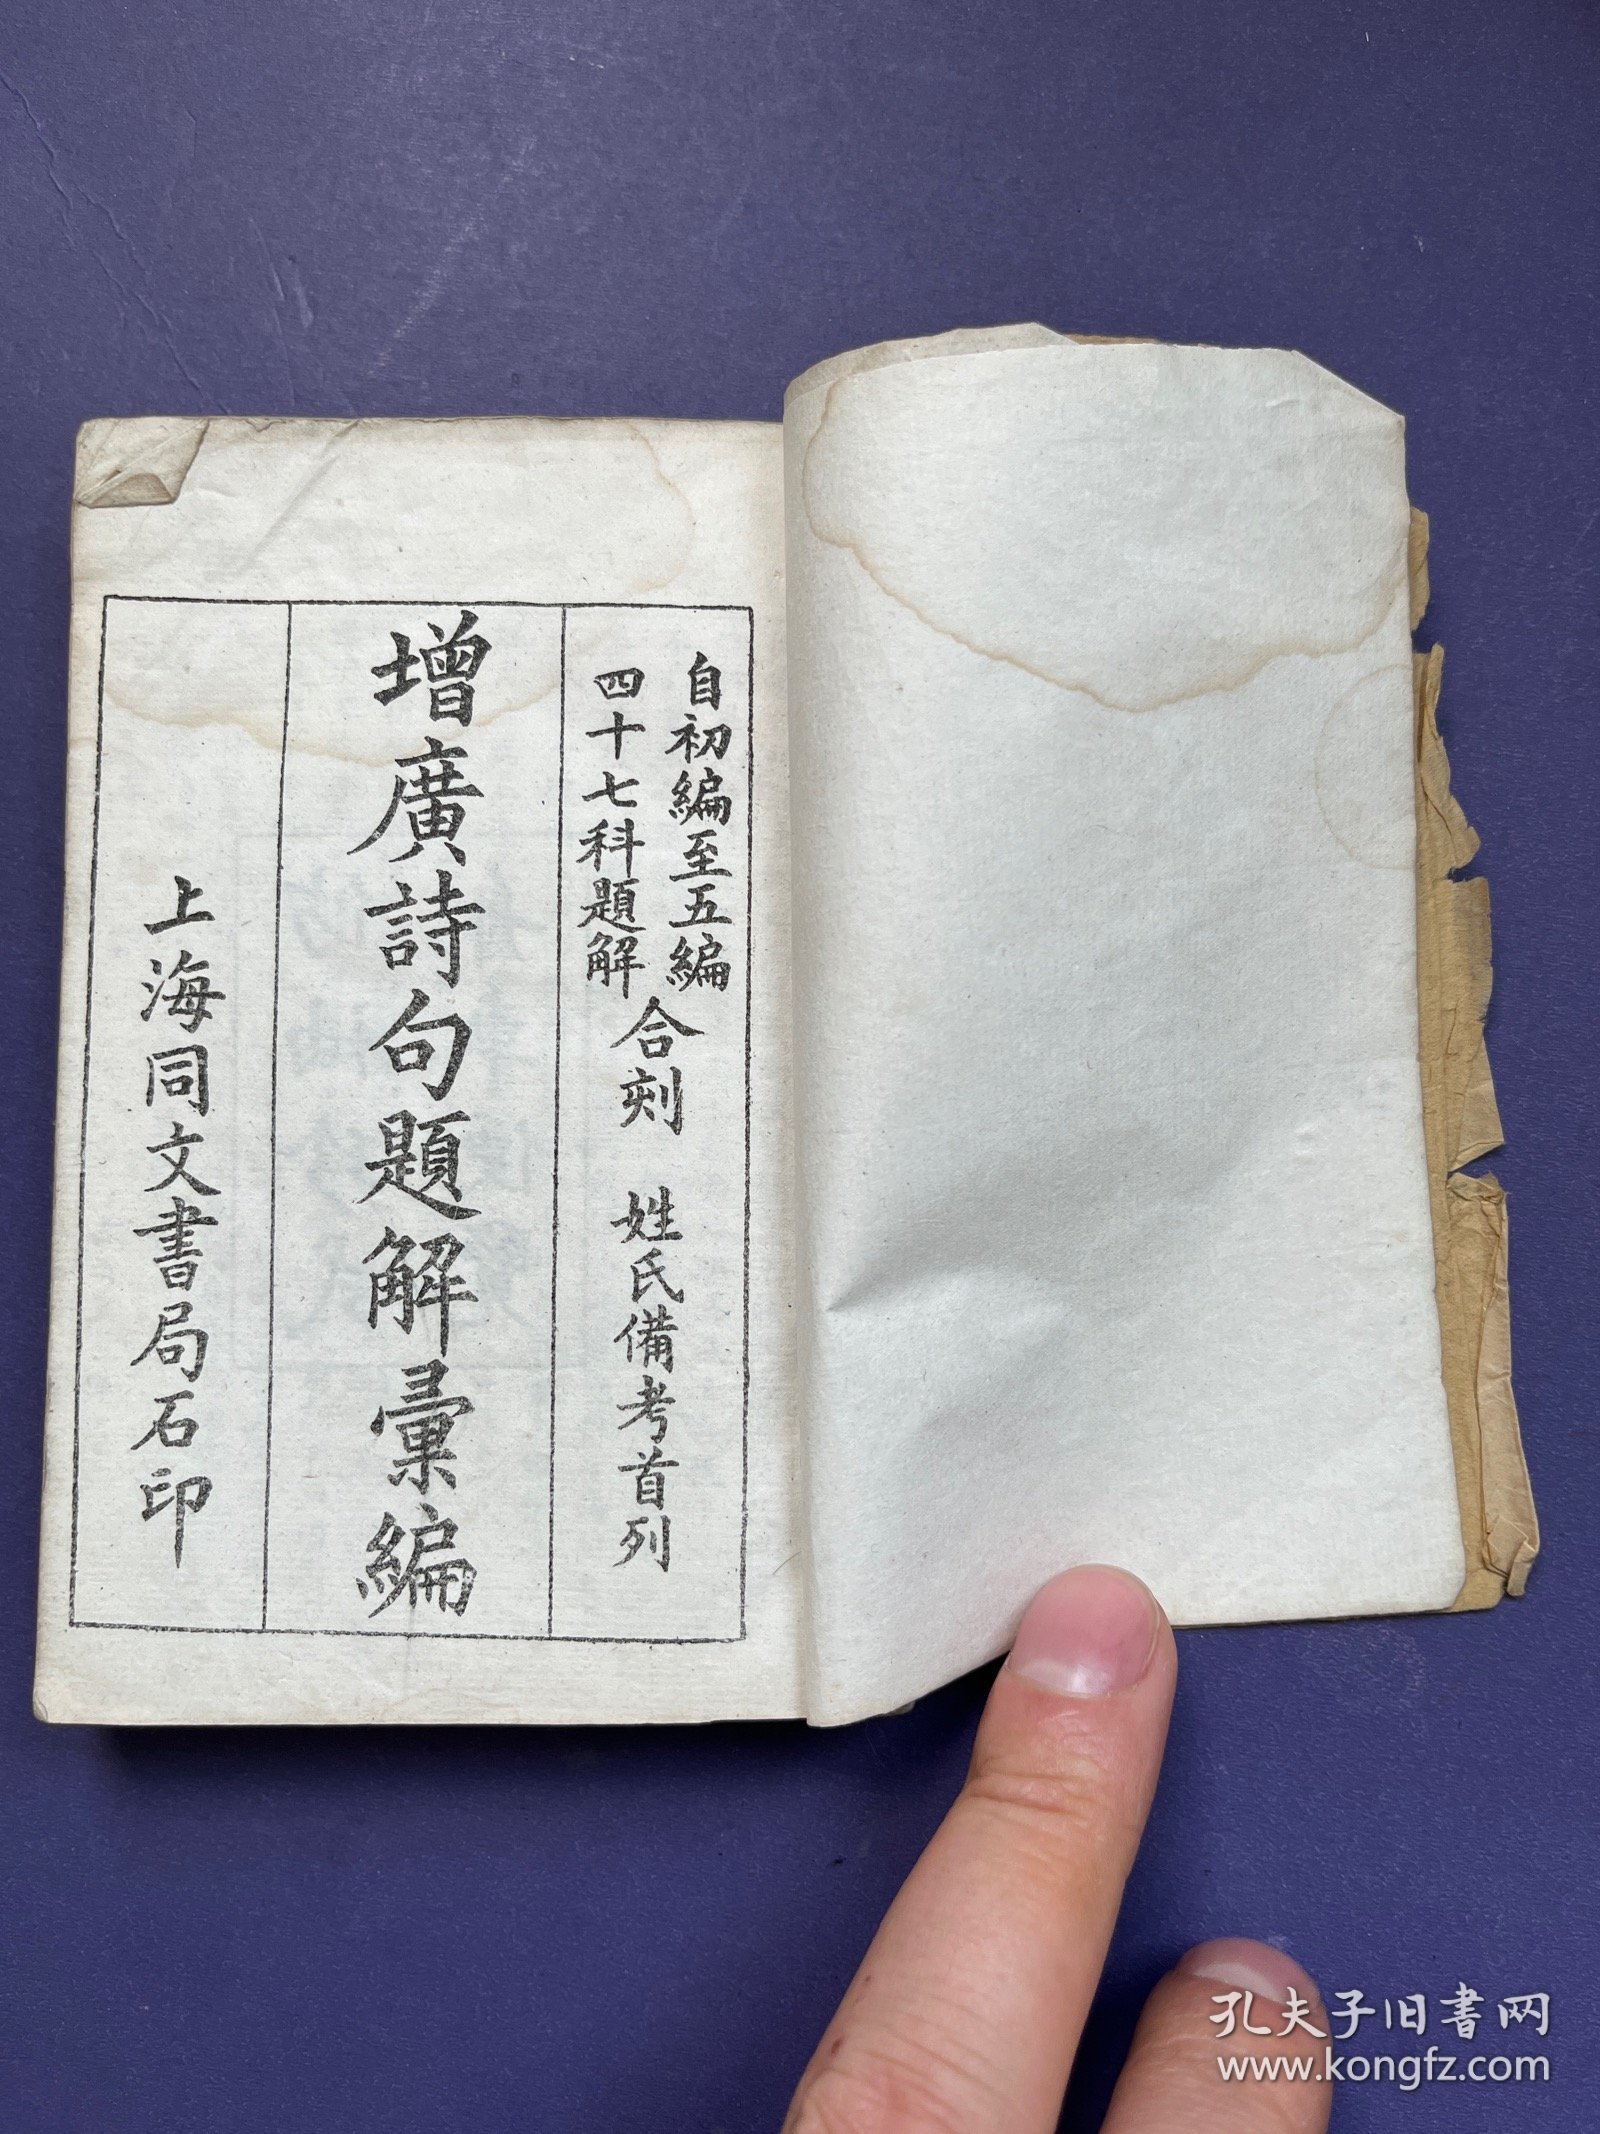 自初編至五編
四十七科題解
合刻 姓氏備考首列
增廣詩句題解彙編
上海同文書局石印
孔夫子旧書网
www.kongfz.com